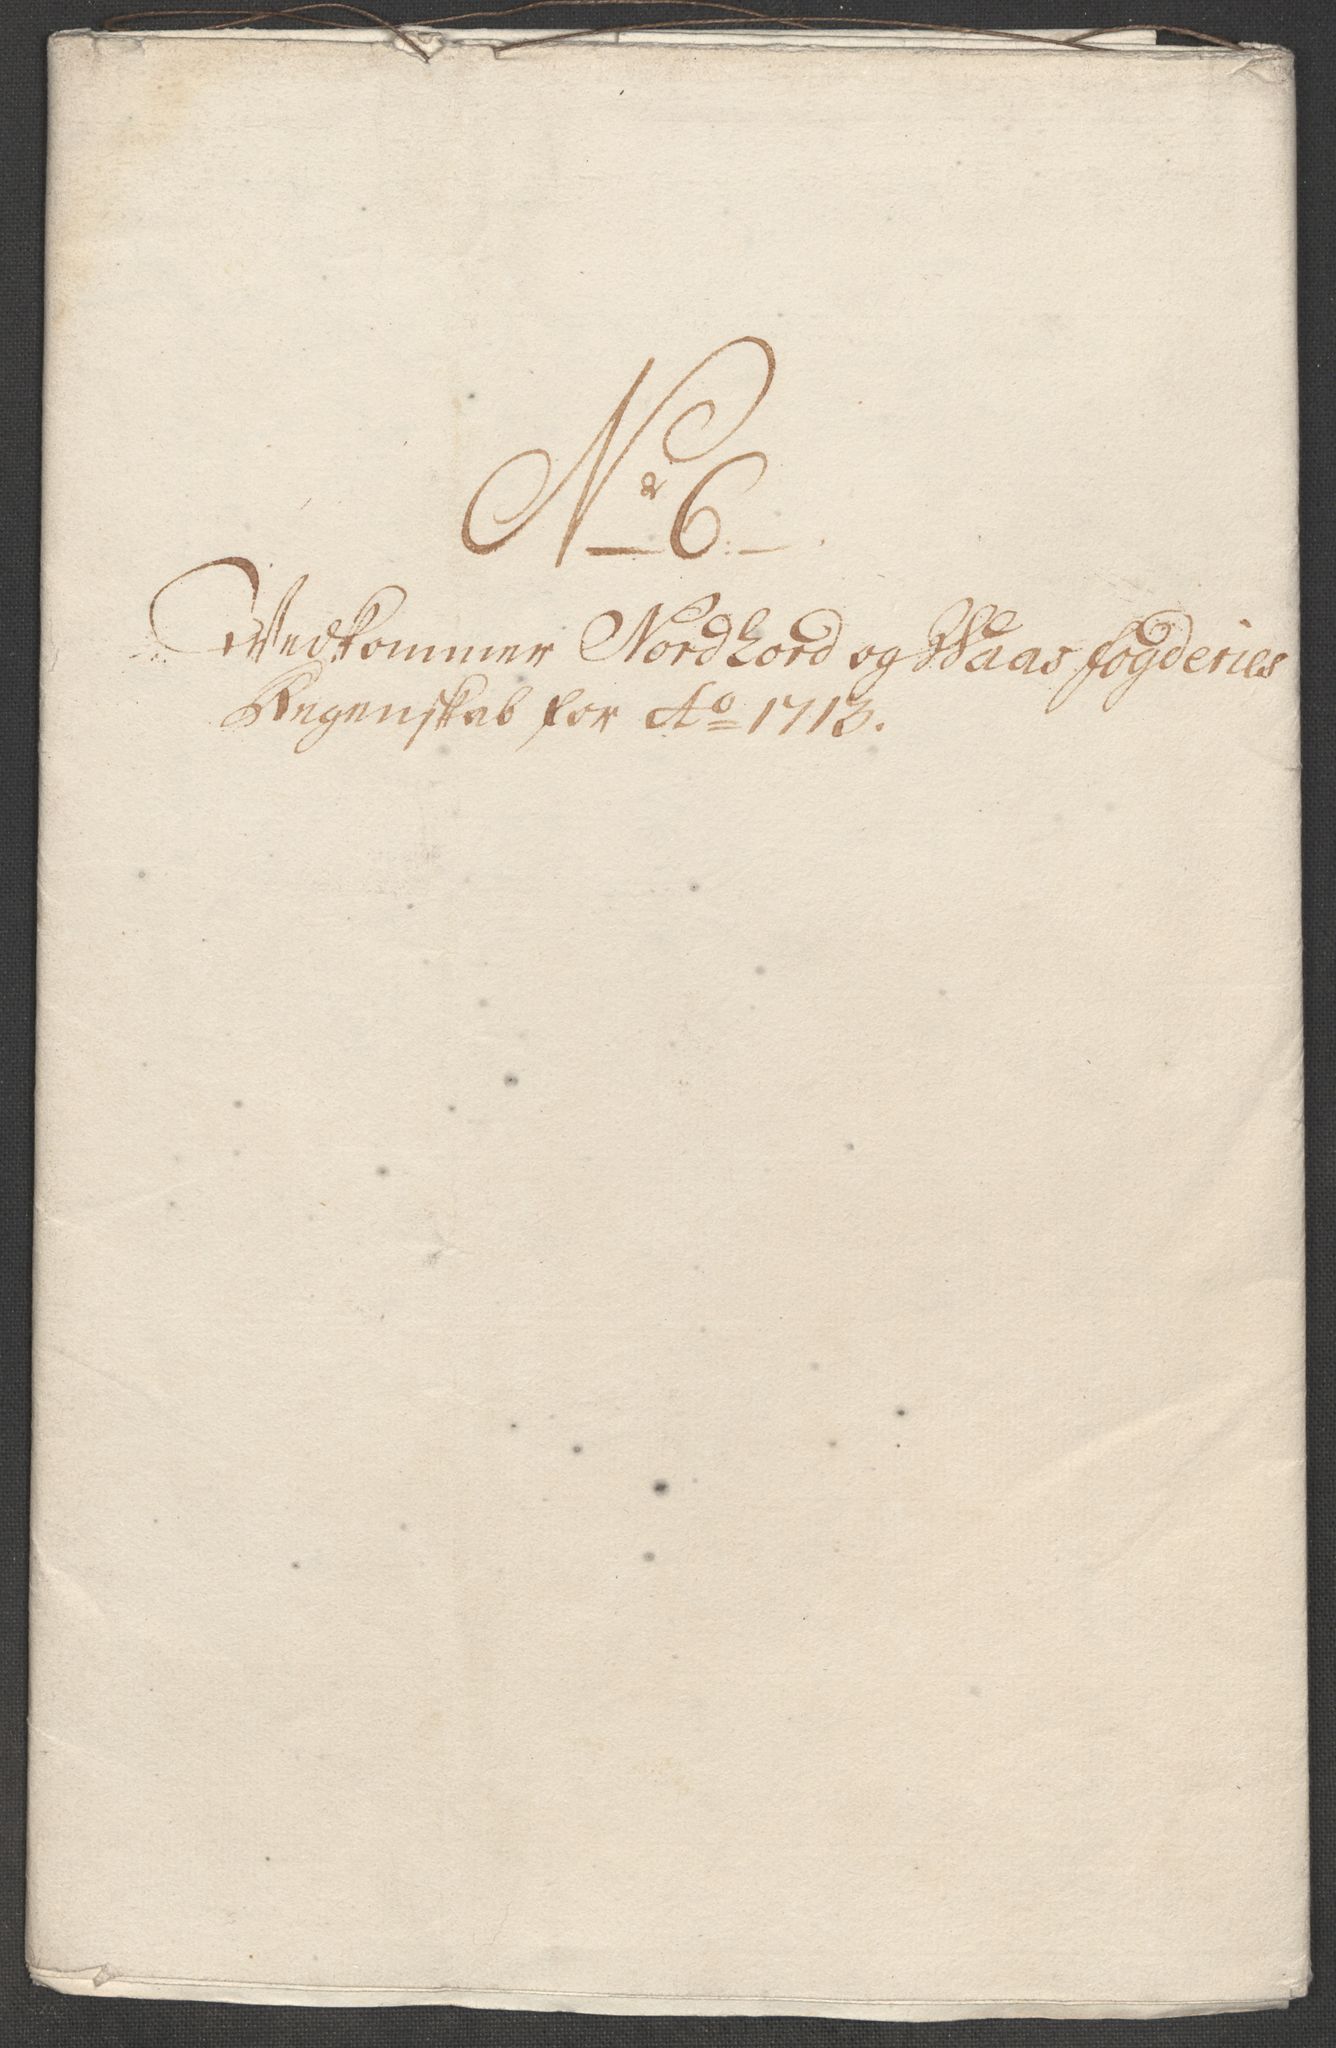 No 6.
Vedkommer Nordhord og Waas fogderies
Regenskab for Ao 1713.